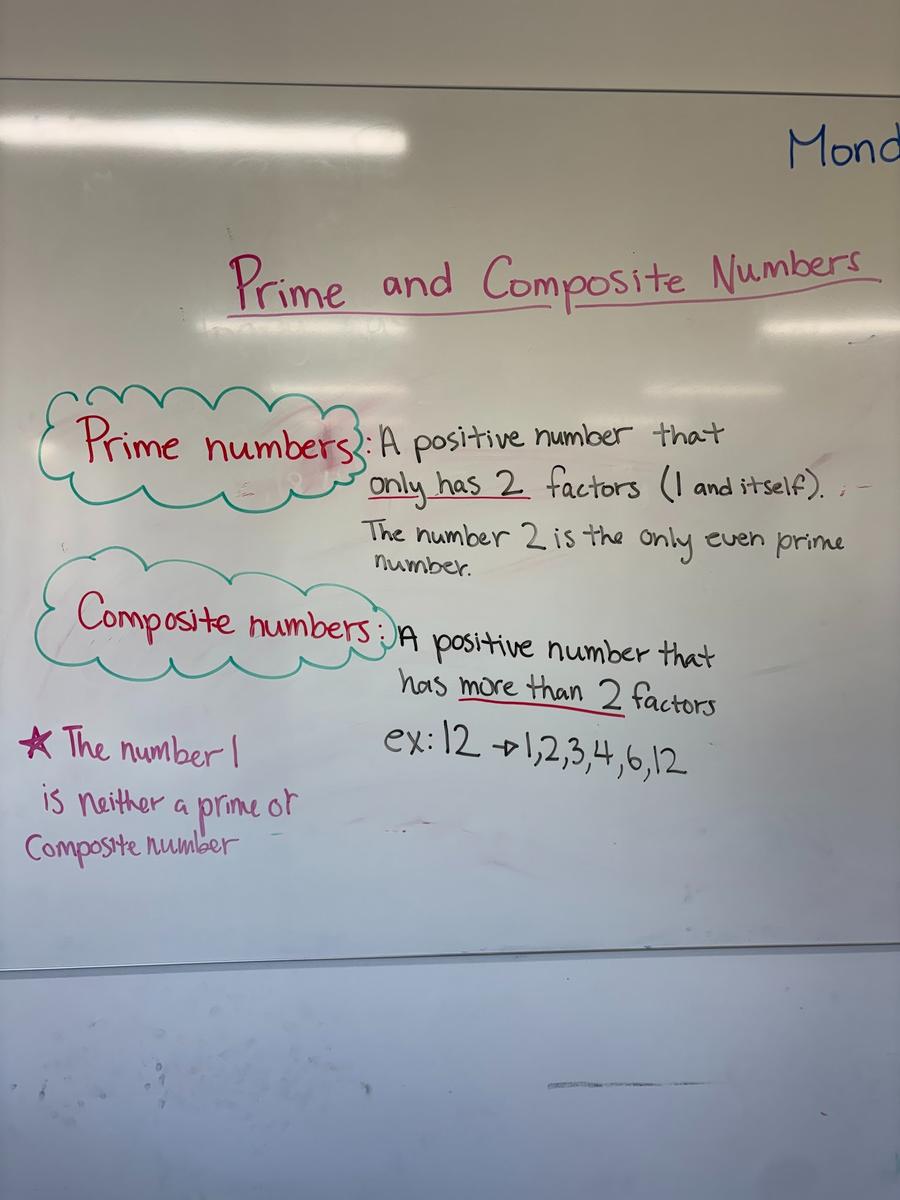 Mond
Prime and Composite Numbers
Prime numbers: A positive number that
only has 2 factors (1 and itself).
The number 2 is the only even prime
number.
Composite numbers: A positive number that
has more than 2 factors
ex: 12 → 1,2,3,4,6,12
★ The number 1
is neither a prime or
Composite number